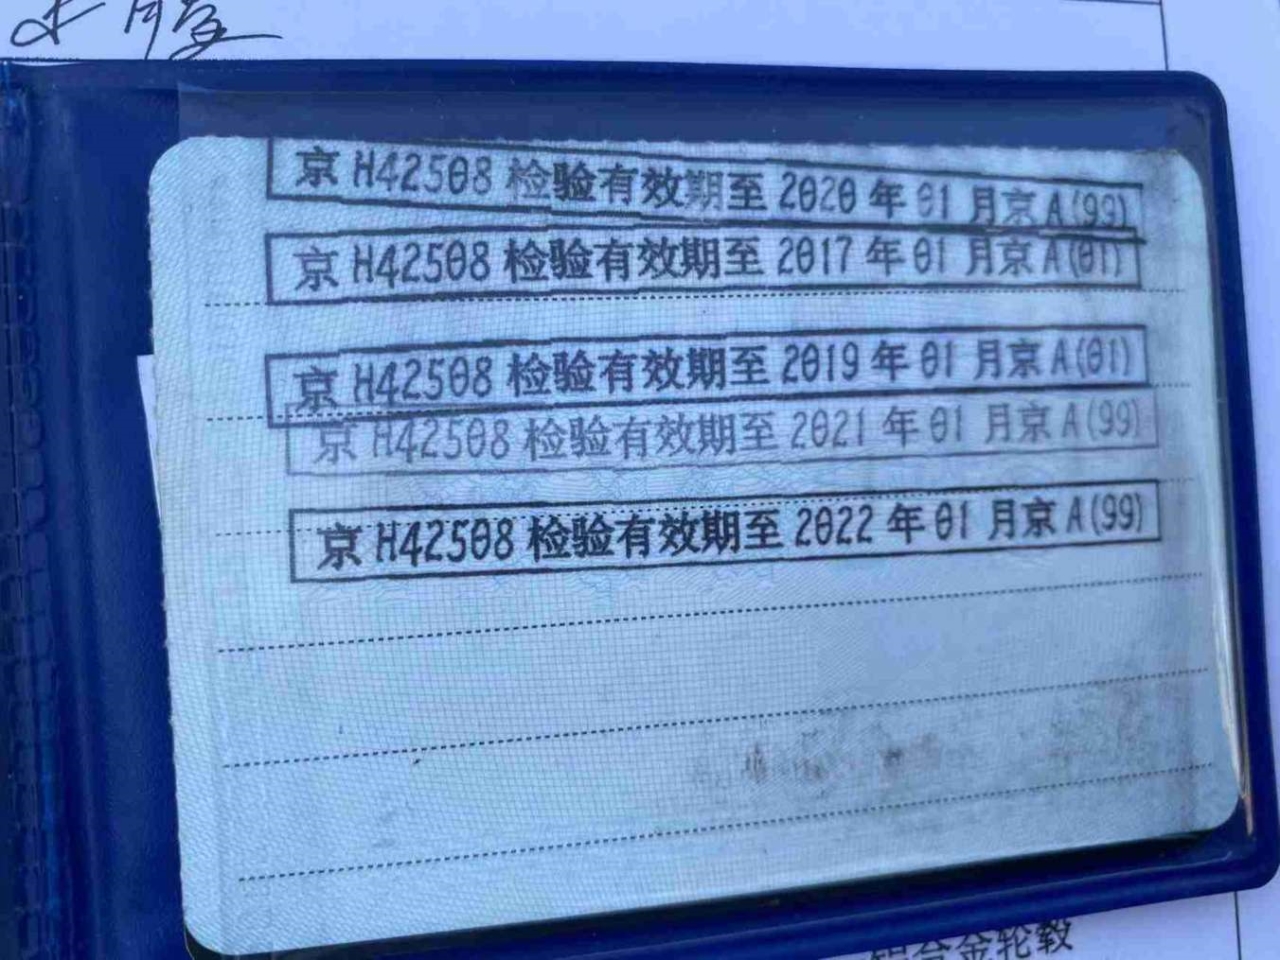 京H42508 检验有效期至 2020 年 01 月京A(99)
京H42508 检验有效期至 2017 年 01 月京A(01)
京H42508 检验有效期至 2019 年 01 月京A(01)
京H42508 检验有效期至 2021 年 01 月京A(99)
京H42508 检验有效期至 2022 年 01 月京A(99)
铝合金轮毂